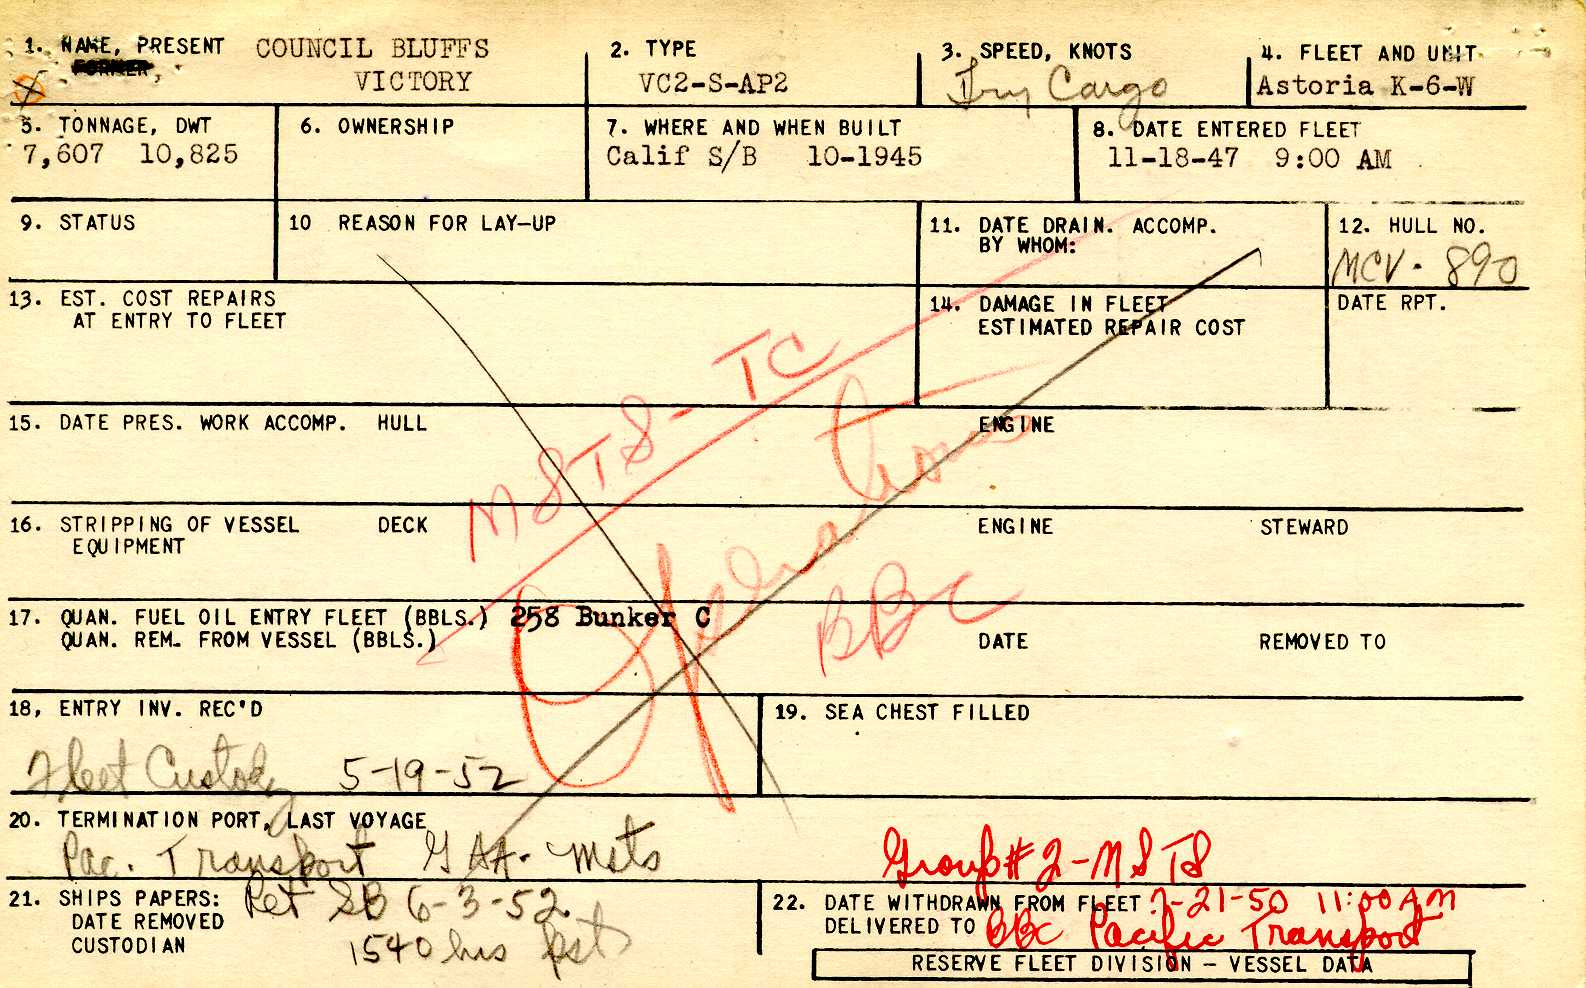 1. NAME, PRESENT COUNCIL BLUFFS
FORMER, VICTORY
2. TYPE
VC2-S-AP2
3. SPEED, KNOTS
Dry Cargo
4. FLEET AND UNIT
Astoria K-6-W
5. TONNAGE, DWT
7,607 10,825
6. OWNERSHIP
7. WHERE AND WHEN BUILT
Calif S/B 10-1945
8. DATE ENTERED FLEET
11-18-47 9:00 AM
9. STATUS
10 REASON FOR LAY-UP
11. DATE DRAIN. ACCOMP.
BY WHOM:
12. HULL NO.
MCV. 890
13. EST. COST REPAIRS
AT ENTRY TO FLEET
14. DAMAGE IN FLEET
ESTIMATED REPAIR COST
DATE RPT.
MSTS-TC
Operations
BBC
15. DATE PRES. WORK ACCOMP. HULL ENGINE
16. STRIPPING OF VESSEL DECK ENGINE STEWARD
EQUIPMENT
17. QUAN. FUEL OIL ENTRY FLEET (BBLS.) 258 Bunker C
QUAN. REM. FROM VESSEL (BBLS.) DATE REMOVED TO
18, ENTRY INV. REC'D
Fleet Custody 5-19-52
19. SEA CHEST FILLED
20. TERMINATION PORT, LAST VOYAGE
Pac. Transport GAA. Msts Group # 2-MSTS
21. SHIPS PAPERS: Ret SB 6-3-52
DATE REMOVED
CUSTODIAN 1540 hrs pst
22. DATE WITHDRAWN FROM FLEET 7-21-50 11:00 AM
DELIVERED TO BBC Pacific Transport
RESERVE FLEET DIVISION - VESSEL DATA